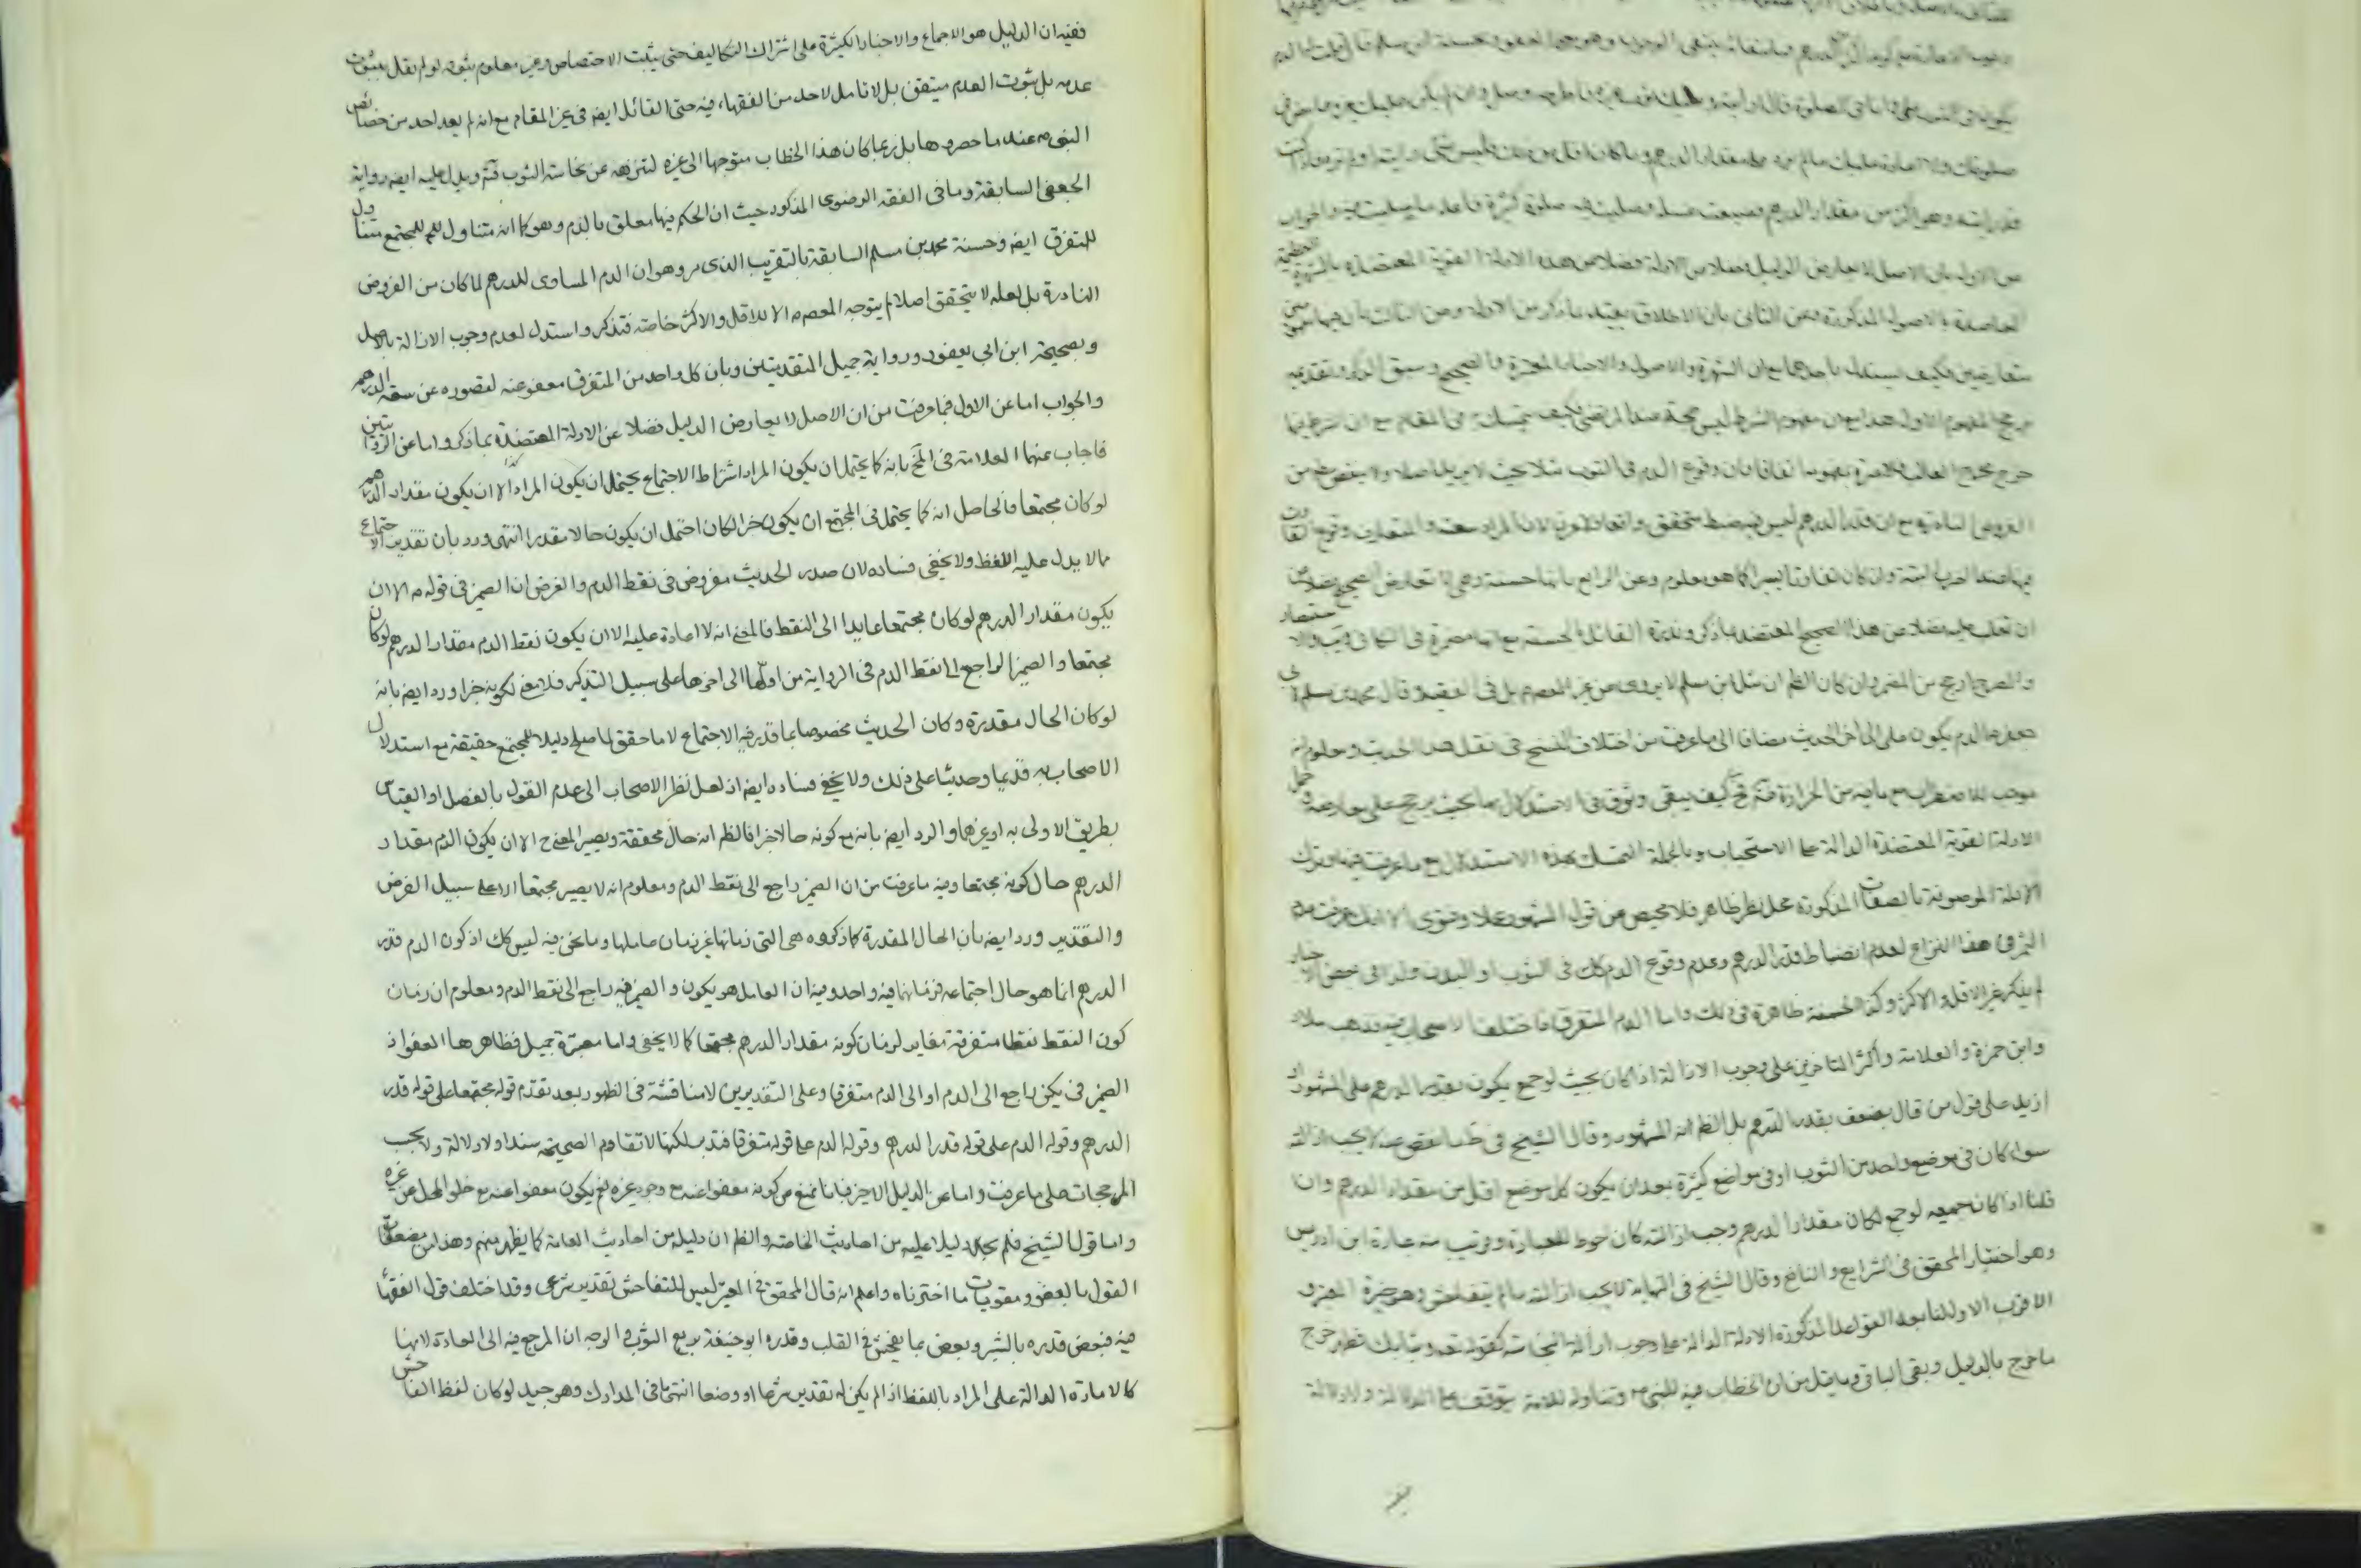 وجوب الاعادة مع كونه
صلوتك ولا اعادة عليك ما لم يزد على مقدار الدرهم وما كان اقل من ذلك فليس بشئ رايته او لم تره فاذا كنت
قد رايته وهو اكثر من مقدار الدرهم فضيعت غسله وصليت فيه صلوة كثيرة فاعد ما صليت فيه والجواب
عن الاول بان الاصل لا يعارض الدليل فضلا من الادلة فضلا عن هذه الادلة القوية المعتضدة بالشهرة العظيمة
المذكورة وعن الثانى بان الاطلاق يقيد بما ذكر من الادلة وعن الثالث بان
متعارضين فكيف يستدل باحدهما مع ان الشهرة والاصول والاخبار المعتبرة
الاول هذا مع ان مفهوم الشرط ليس بحجة عند المرتضى فكيف يتمسك به فى المقام مع ان الشرط فيها
خرج مخرج الغالب فلا عبرة بمفهومه اتفاقا فان وقوع الدم فى الثوب مثلا بحيث لا يزيد اصلا ولا ينقص من
الفروض النادرة مع ان قدر الدرهم ليس
وان كان تفاوتا يسيرا كما هو معلوم وعن الرابع بانها حسنة وهى لا تعارض الصحيح فضلا عن
ان تغلب عليه فضلا عن هذا الصحيح المعتضد بما ذكر وندرة القائل بالحسنة مع انها مضمرة فى الكافى
والمصرح ارجح من المضمر وان كان الظ ان مثل ابن مسلم لا يروى عن غير المعصوم بل فى الفقيه وقال محمد بن مسلم لابى
جعفر ع الدم يكون على الى اخر الحديث مضافا الى ما عرفت من اختلاف النسخ فى نقل هذا الحديث ومعلوم انه
موجب للاضطراب مع ما فيه من الحزازة فكيف يبقى وثوق فى الاستدلال بها بحيث يرجح على معارضه وحمل
الادلة القوية المعتضدة الدالة على الاستحباب وبالجملة التمسك بهذه الاستدلال مع ما عرفت فيها وترك
الادلة الموصوفة بالصفات المذكورة محل نظر ظاهر فلا محيص عن قول المشهور عملا وفتوى الا انك عرفت عدم
الثمر فى هذا النزاع لعدم انضباط قدر الدرهم وعدم وقوع الدم كك فى الثوب او البدن ولذا فى بعض الاخبار
لم يذكر غير الاقل والاكثر وكذا الحسنة ظاهرة فى ذلك واما الدم المتفرق فاختلف الاصحاب فيه فذهب سلار
وابن حمزة والعلامة واكثر المتاخرين على وجوب الازالة اذا كان بحيث لو جمع يكون بقدر الدرهم على المشهور او
ازيد على قول من قال بضعف بقدر الدرهم بل الظ انه المشهور وقال الشيخ فى ط ما نقص عنه لا يجب ازالته
سواء كان فى موضع واحد من الثوب او فى مواضع كثيرة بعد ان يكون كل موضع اقل من مقدار الدرهم وان
قلنا اذا كان جميعه لو جمع لكان مقدار الدرهم وجب ازالته كان احوط للعبادة وقريب منه عبارة ابن ادريس
وهو اختيار المحقق فى الشرايع والنافع وقال الشيخ فى النهاية لا يجب ازالته ما لم يتفاحش وهو خيرة المعتبر و
الاقرب الاول لنا بعد القواعد المذكورة الادلة الدالة على وجوب ازالة النجاسة كقوله تعـ وثيابك فطهر خرج
ما خرج بالدليل وبقى الباقى وما يقل من ان الخطاب فيه للنبى ص وتناوله للامة يتوقف على الدلالة ولا دلالة
ففيه ان الدليل هو الاجماع والاخبار الكثيرة على اشتراك التكاليف حتى يثبت الاختصاص وغير معلوم ثبوته لو لم نقل بثبوت
عدمه بل ثبوت العدم متيقن بل لا تامل لاحد من الفقهاء فيه حتى القائل ايضا فى غير المقام مع انه لم يعد احد من خصائص
النبى ص عند ما حصروها بل ربما كان هذا الخطاب متوجها الى غيره لتنزهه عن نجاسة الثوب فتـ ويدل عليه ايضا رواية
الجعفى السابقة وما فى الفقه الرضوى المذكور حيث ان الحكم فيها معلق بالدم وهو كما انه متناول للمجتمع متناول
للمتفرق ايضا وحسنة محمد بن مسلم السابقة بالتقريب الذى مر وهو ان الدم المساوى للدرهم لما كان من الفروض
النادرة بل لعله لا يتحقق اصلا لم يتوجه المعصوم الا للاقل والاكثر خاصة فتذكر واستدل لعدم وجوب الازالة بالاصل
وبصحيحة ابن ابى يعفور ورواية جميل المتقدمتين وبان كل واحد من المتفرق معفو عنه لقصوره عن سعة الدرهم
والجواب اما عن الاول فبما عرفت من ان الاصل لا يعارض الدليل فضلا عن الادلة المعتضدة بما ذكر واما عن الروايتين
فاجاب عنهما العلامة فى المخ بانه كما يحتمل ان يكون المراد اشتراط الاجتماع يحتمل ان يكون المراد الا ان يكون مقدار الدرهم
لو كان مجتمعا فالحاصل انه كما يحتمل فى المجتمع ان يكون خبرا لكان احتمل ان يكون حالا مقدرا انتهى ورد بان تقدير الاجتماع
مما لا يدل عليه اللفظ ولا يخفى فساده لان صدر الحديث مفروض فى نقط الدم والغرض ان الضمير فى قوله ع الا ان
يكون مقدار الدرهم لو كان مجتمعا عايدا الى النقط فالمعنى انه لا اعادة عليه الا ان يكون نقط الدم مقدار الدرهم لو كان
مجتمعا والضمير الراجع الى نقط الدم فى الرواية من اولها الى اخرها على سبيل التذكير فلا معنى لكونه خبرا ورد ايضا بانه
لو كان الحال مقدرة وكان الحديث مخصوصا بما قدر فيه الاجتماع لا ما حقق لما صلح دليلا للمجتمع حقيقة مع استدلال
الاصحاب به قديما وحديثا على ذلك ولا يخفى فساده ايضا اذ لعل نظر الاصحاب الى عدم القول بالفصل او القياس
بطريق الاولى به او غيرهما والرد ايضا بانه مع كونه حالا لا خبرا فالظ انه حال محققة ويصير المعنى ح الا ان يكون الدم مقدار
الدرهم حال كونه مجتمعا وفيه ما عرفت من ان الضمير راجع الى نقط الدم ومعلوم انه لا يصير مجتمعا الا على سبيل الفرض
والتقدير ورد ايضا بان الحال المقدرة كما ذكروه هى التى زمانها غير زمان عاملها وما نحن فيه ليس كك اذ كون الدم قدر
الدرهم انما هو حال اجتماعه فزمانهما فيه واحد وفيه ان العامل هو يكون والضمير فيه راجع الى نقط الدم ومعلوم ان زمان
كون النقط نقطا متفرقة مغاير لزمان كونه مقدار الدرهم مجتمعا كما لا يخفى واما معتبرة جميل فظاهرها العفو اذ
الضمير فى يكن راجع الى الدم او الى الدم متفرقا وعلى التقديرين لا مناقشة فى الظهور بعد تقدم قوله مجتمعا على قوله قدر
الدرهم وقوله الدم على قوله قدر الدرهم وقوله الدم على قوله متفرقا فتدبر لكنها لا تقاوم الصحيحة سندا ولا دلالة ولا بحسب
المرجحات على ما عرفت واما عن الدليل الاخير فبانا نمنع من كونه معفوا عنه مع وجود غيره نعم يكون معفوا عنه مع خلو المحل عن غيره
واما قول الشيخ فلم نجد له دليلا عليه من احاديث الخاصة والظ ان دليله من احاديث العامة كما يظهر منهم وهذا من مضعفات
القول بالعفو ومقويات ما اخترناه واعلم انه قال المحقق فى المعتبر ليس للتفاحش تقدير شرعى وقد اختلف قول الفقهاء
فيه فبعض قدره بالشبر وبعض بما يفحش فى القلب وقدره ابو حنيفة بربع الثوب والوجه ان المرجع فيه الى العادة لانها
كالامارة الدالة على المراد باللفظ اذا لم يكن له تقدير شرعا او وضعا انتهى ما فى المدارك وهو جيد لو كان لفظ الفاحش